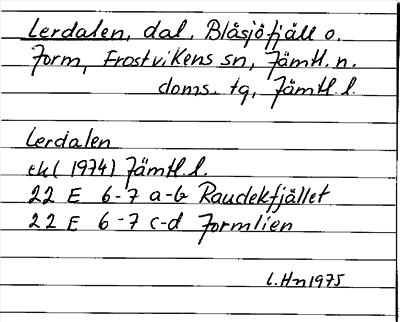 Lerdalen, dal, Blåsjöfjäll o.
Jorm, Frostvikens sn, Jämtl. n.
doms. tg, Jämtl. l.
Lerdalen
ek (1974) Jämtl. l.
22 E 6-7 a-b Raudekfjället
22 E 6-7 c-d Jormlien
L. Hn 1975